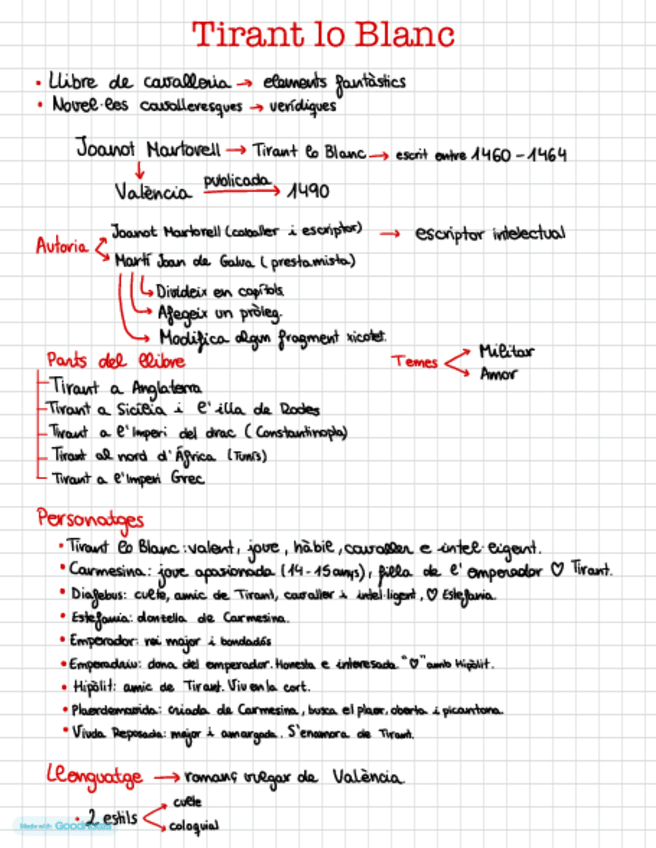 Tirant lo Blanc
• Llibre de cavalleria → elements fantàstics
• Novel·les cavalleresques → verídiques
Joanot Martorell → Tirant lo Blanc → escrit entre 1460 - 1464
↓
València publicada → 1490
Autoria
Joanot Martorell (caballer i escriptor) → escriptor intelectual
Martí Joan de Galva (prestamista)
Divideix en capítols.
Afegeix un pròleg.
Modifica algun fragment xicotet.
Parts del llibre
Tirant a Anglaterra
Tirant a Sicília i l'illa de Rodes
Tirant a l'Imperi del drac (Constantinopla)
Tirant al nord d'Àfrica (Tunis)
Tirant a l'Imperi Grec
Temes
Militar
Amor
Personatges
• Tirant lo Blanc: valent, jove, hàbil, cavaller e intel·ligent.
• Carmesina: jove apasionada (14-15 anys), filla de l'emperador ♡ Tirant.
• Diafebus: culte, amic de Tirant, cavaller i intel·ligent, ♡ Estefania.
• Estefania: donzella de Carmesina.
• Emperador: rei major i bondadós
• Emperadriu: dona del emperador. Honesta e interesada "♡" amb Hipòlit.
• Hipòlit: amic de Tirant. Viu en la cort.
• Plaerdemavida: criada de Carmesina, busca el plaer, oberta i picantona.
• Viuda Reposada: major i amargada. S'enamora de Tirant.
Llenguatge → romanç vulgar de València
• 2 estils
culte
coloquial
Made with Goodnotes